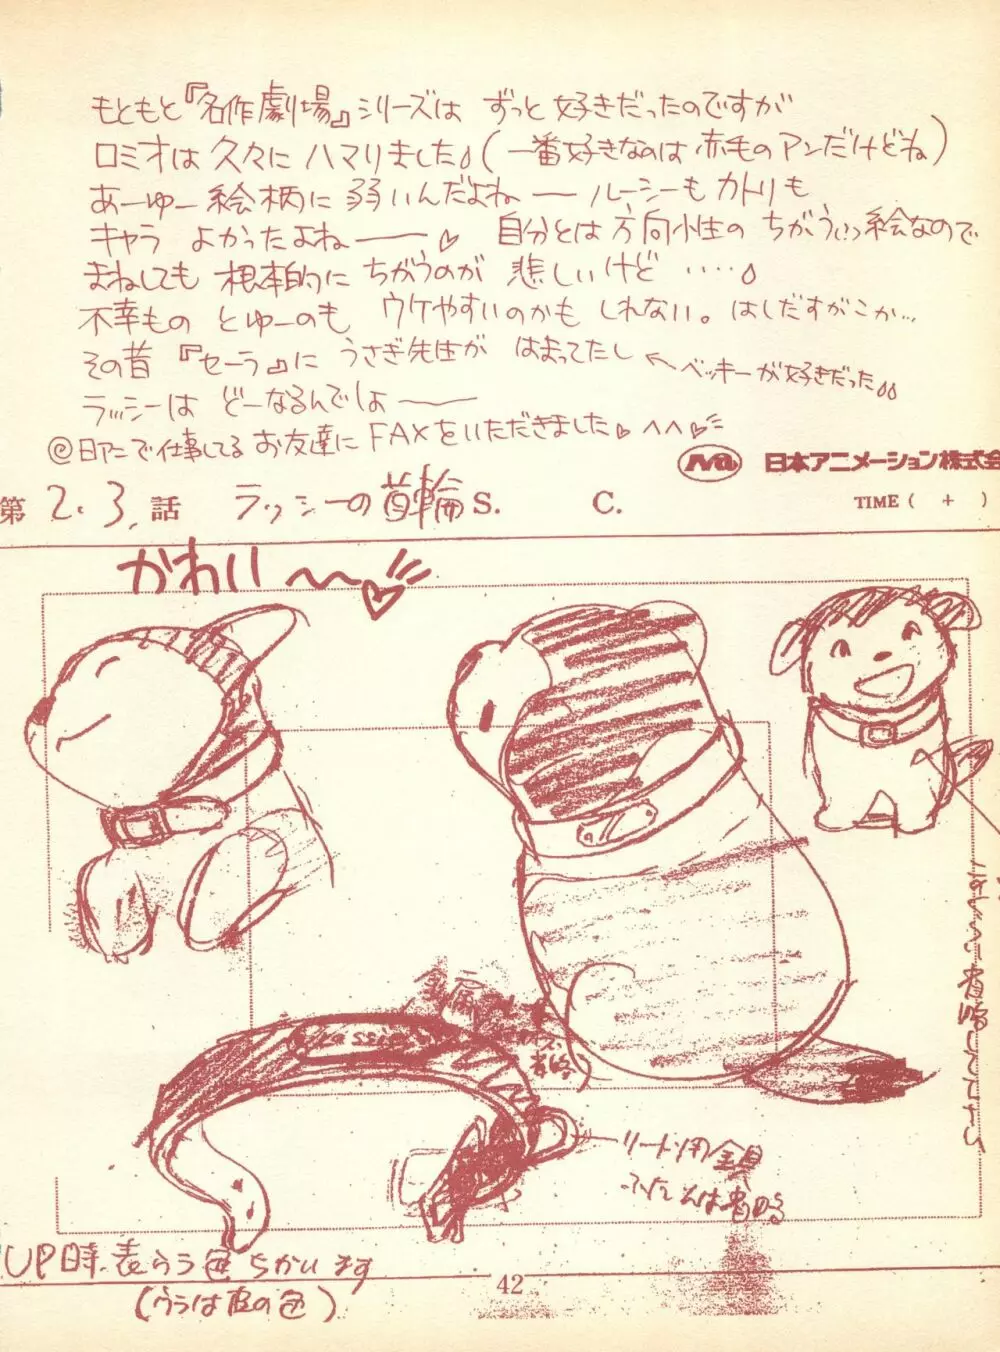 もともと『名作劇場』シリーズは ずっと 好きだったのですが
ロミオは 久々に ハマりました。(一番好きなのは 赤毛の アンだけどね)
あーゆー 絵柄に 弱いんだよね ── ルーシーも カトリも
キャラ よかったよね ──♡ 自分とは 方向性の ちがう 絵なので
まねしても 根本的に ちがうのが 悲しいけど ‥‥。
不幸もの とゆーのも ウケやすいのかも しれない。はしだすがこか…
その昔 『セーラ』に うさぎ先生が はまってたし ←ベッキーが好きだった。
ラッシーは どーなるんでしょ──
@日アニで仕事してる お友達に FAXをいただきました♡ ^^♡
日本アニメーション株式会
第 2.3. 話 ラッシーの首輪 S. C. TIME ( + )
かわい〜〜♡
金属
省略
LASSIE
リード用金具
ふだんは省略
UP時.表らう色ちがいます
(ウラは皮の色)
42